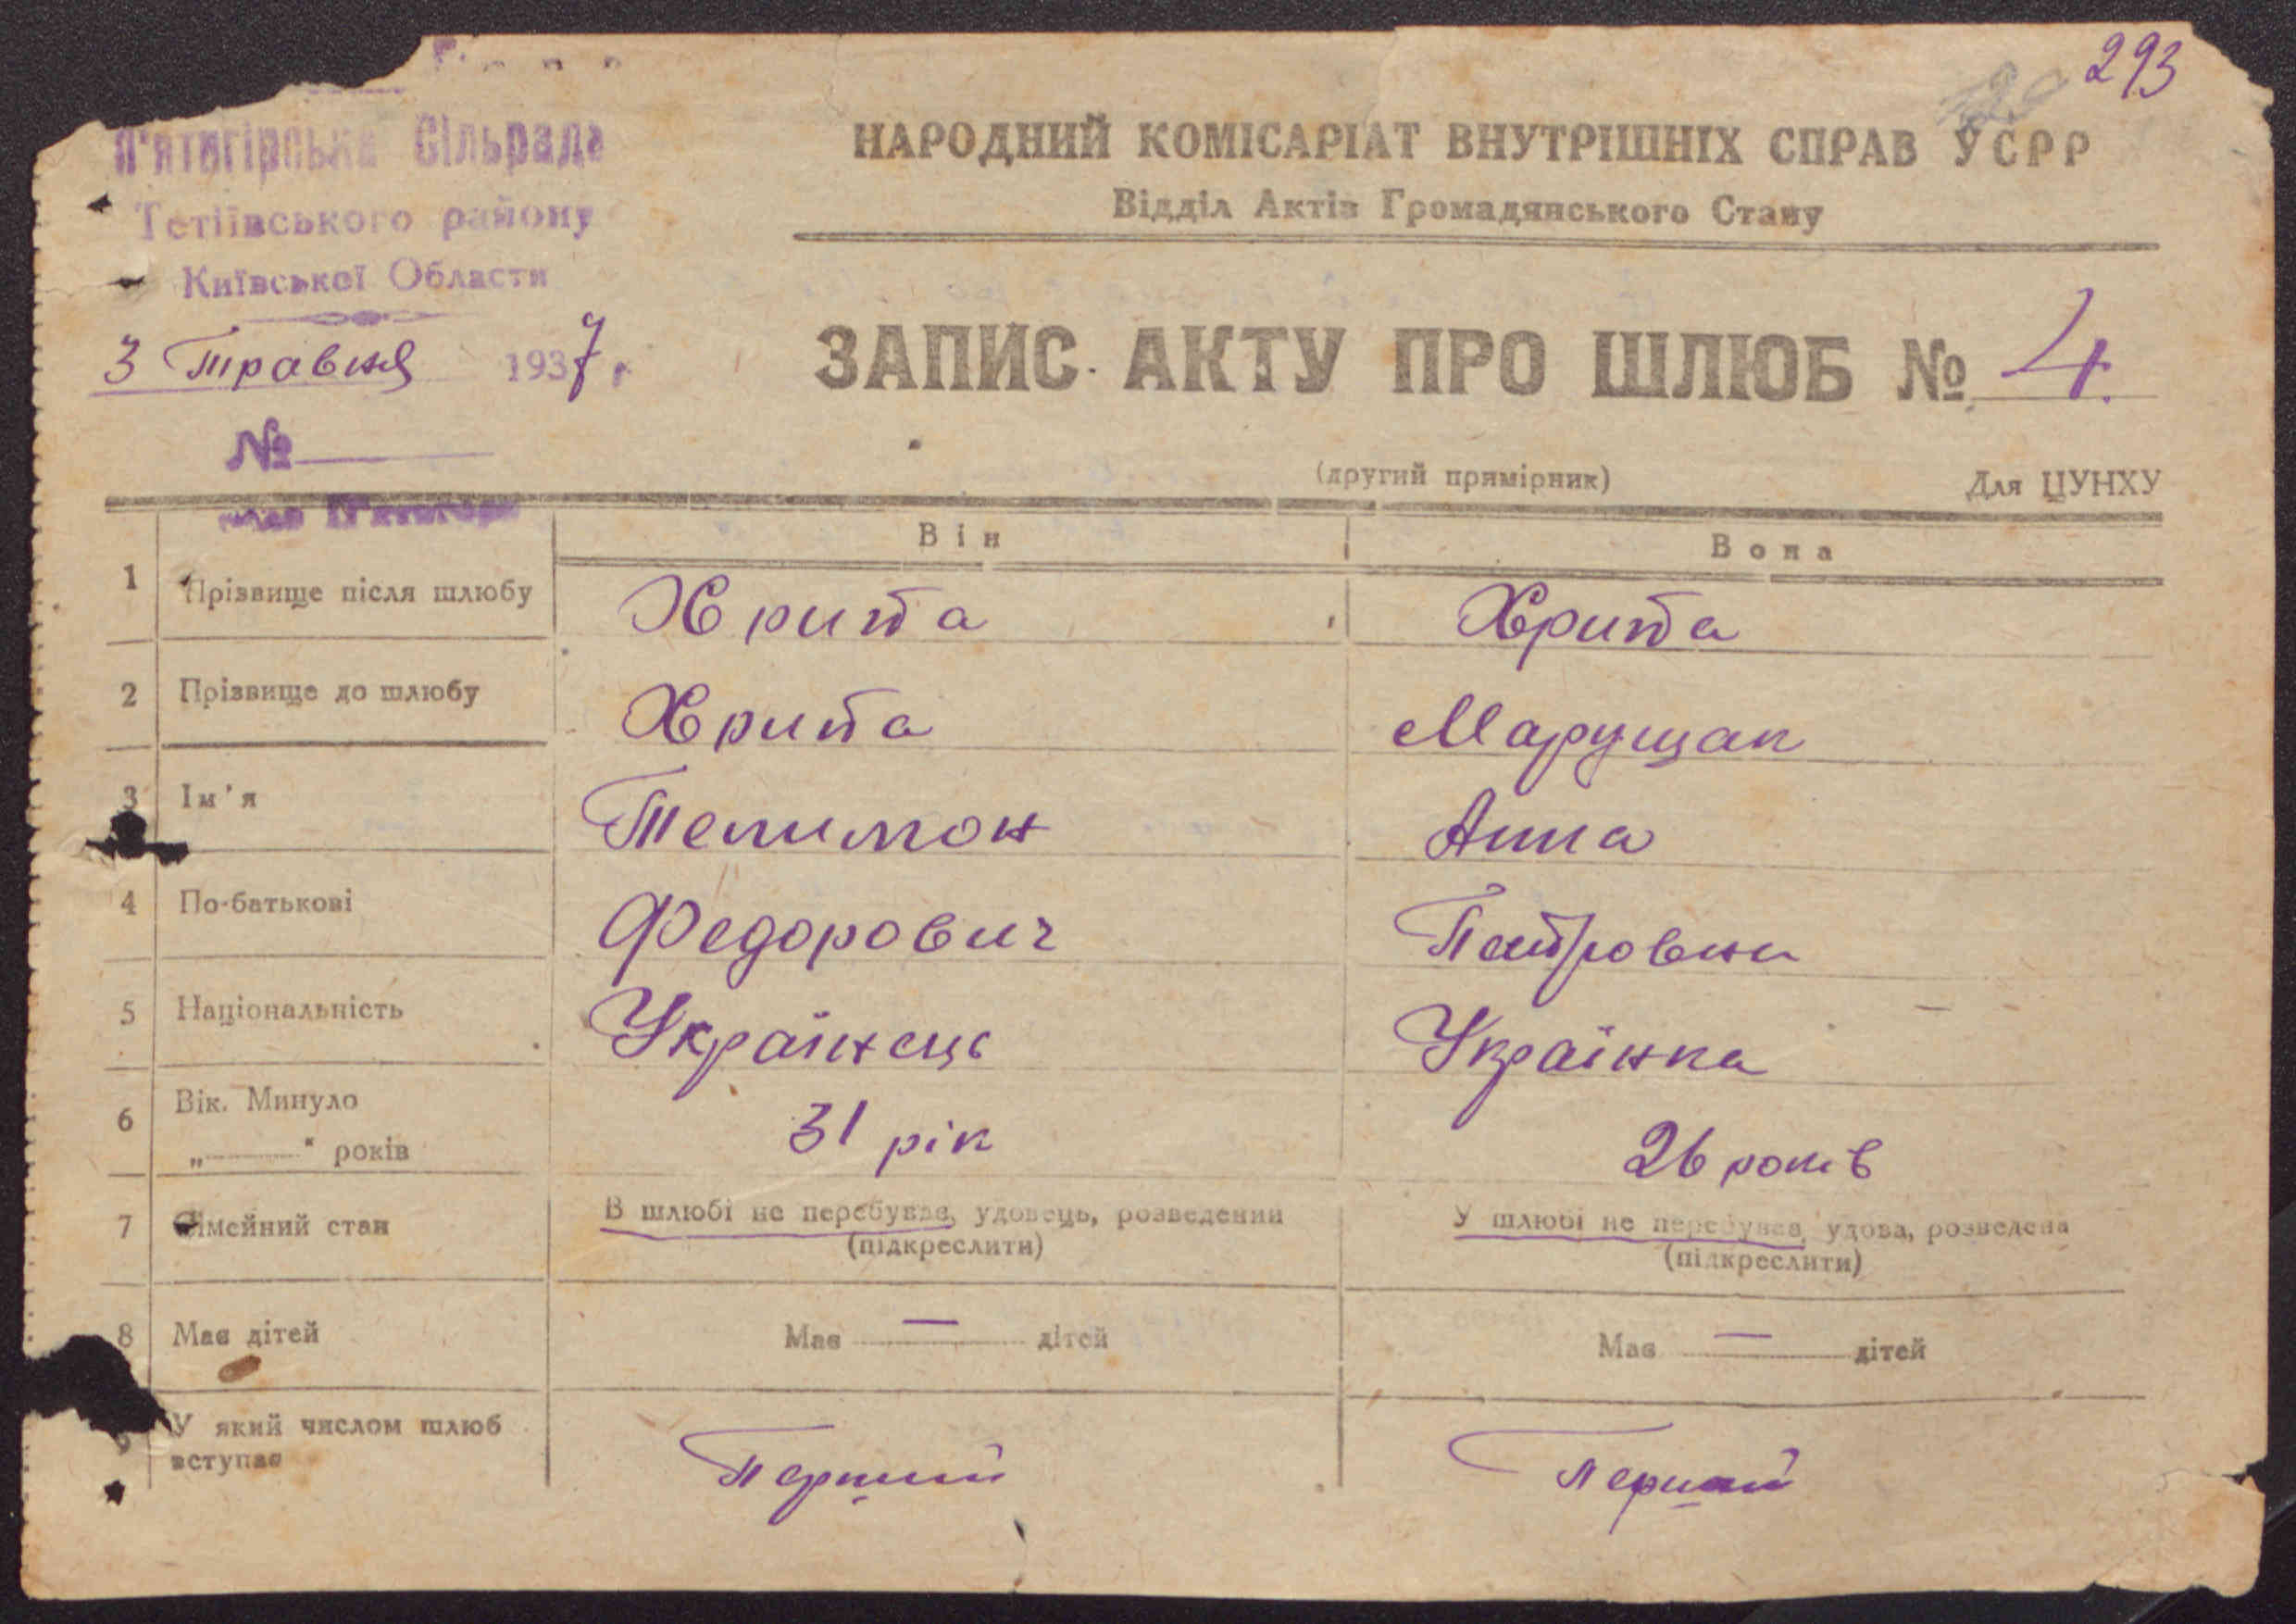 293
П'ятигірська Сільрада
Тетіївського району
Київської Области
3 Травня 1937 р.
№
НАРОДНИЙ КОМІСАРІАТ ВНУТРІШНІХ СПРАВ УСРР
Відділ Актів Громадянського Стану
ЗАПИС АКТУ ПРО ШЛЮБ № 4.
(другий прямірник) Для ЦУНХУ
Він Вона
1 Прізвище після шлюбу Хрипта Хрипта
2 Прізвище до шлюбу Хрипта Марущак
3 Ім'я Телимон Анна
4 По-батькові Федорович Петровна
5 Національність Українець Українка
6 Вік. Минуло
„ “ років 31 рік 26 років
7 Сімейний стан В шлюбі не перебував, удовець, розведений У шлюбі не перебував, удова, розведена
(підкреслити) (підкреслити)
8 Має дітей Має — дітей Має — дітей
9 У який числом шлюб
вступає Перший Перший